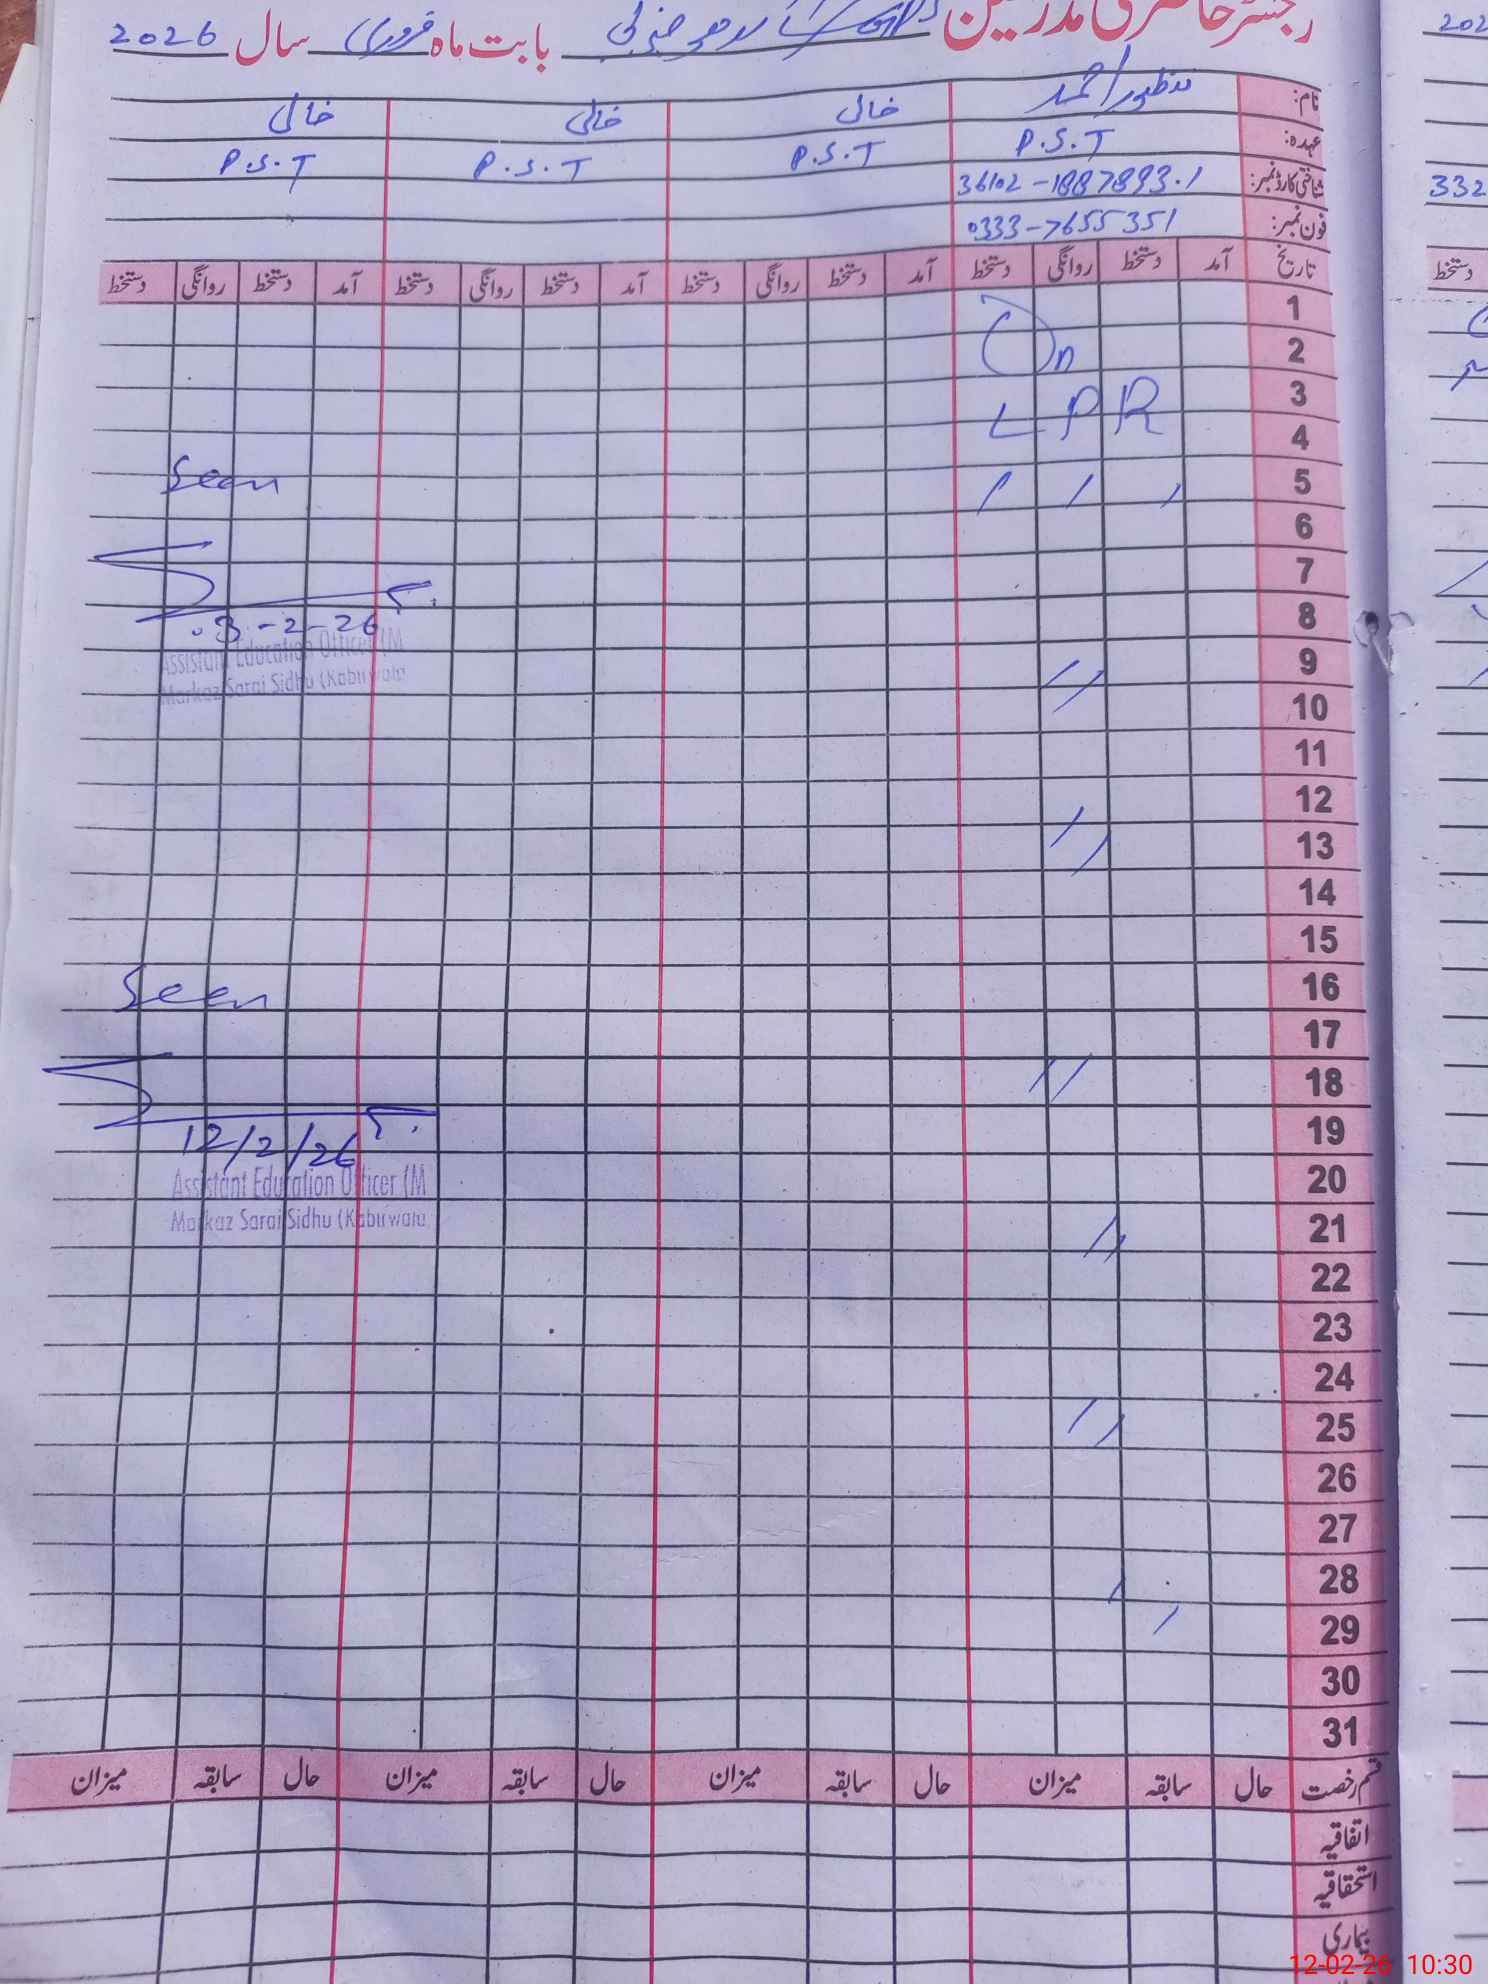 رجسٹر حاضری مدرسین
بابت ماہ فروری سال 2026
نام: منظور احمد خالی خالی خالی
عہدہ: P.S.T P.S.T P.S.T P.S.T
شناختی کارڈ نمبر: 36102-1887893.1
فون نمبر: 0333-7655351
تاریخ آمد دستخط روانگی دستخط آمد دستخط روانگی دستخط آمد دستخط روانگی دستخط آمد دستخط روانگی دستخط
1
2 On
3 LPR
4
5 Seen
6
7
8 03-2-26
Assistant Education Officer (M
9 Markaz Sarai Sidhu (Kabirwala
10
11
12
13
14
15
16 Seen
17
18
19 12/2/26
20 Assistant Education Officer (M
21 Markaz Sarai Sidhu (Kabirwala
22
23
24
25
26
27
28
29
30
31
قسم رخصت حال سابقہ میزان حال سابقہ میزان حال سابقہ میزان حال سابقہ میزان
اتفاقیہ
استحقاقیہ
بیماری
202
332
دستخط
12-02-26 10:30